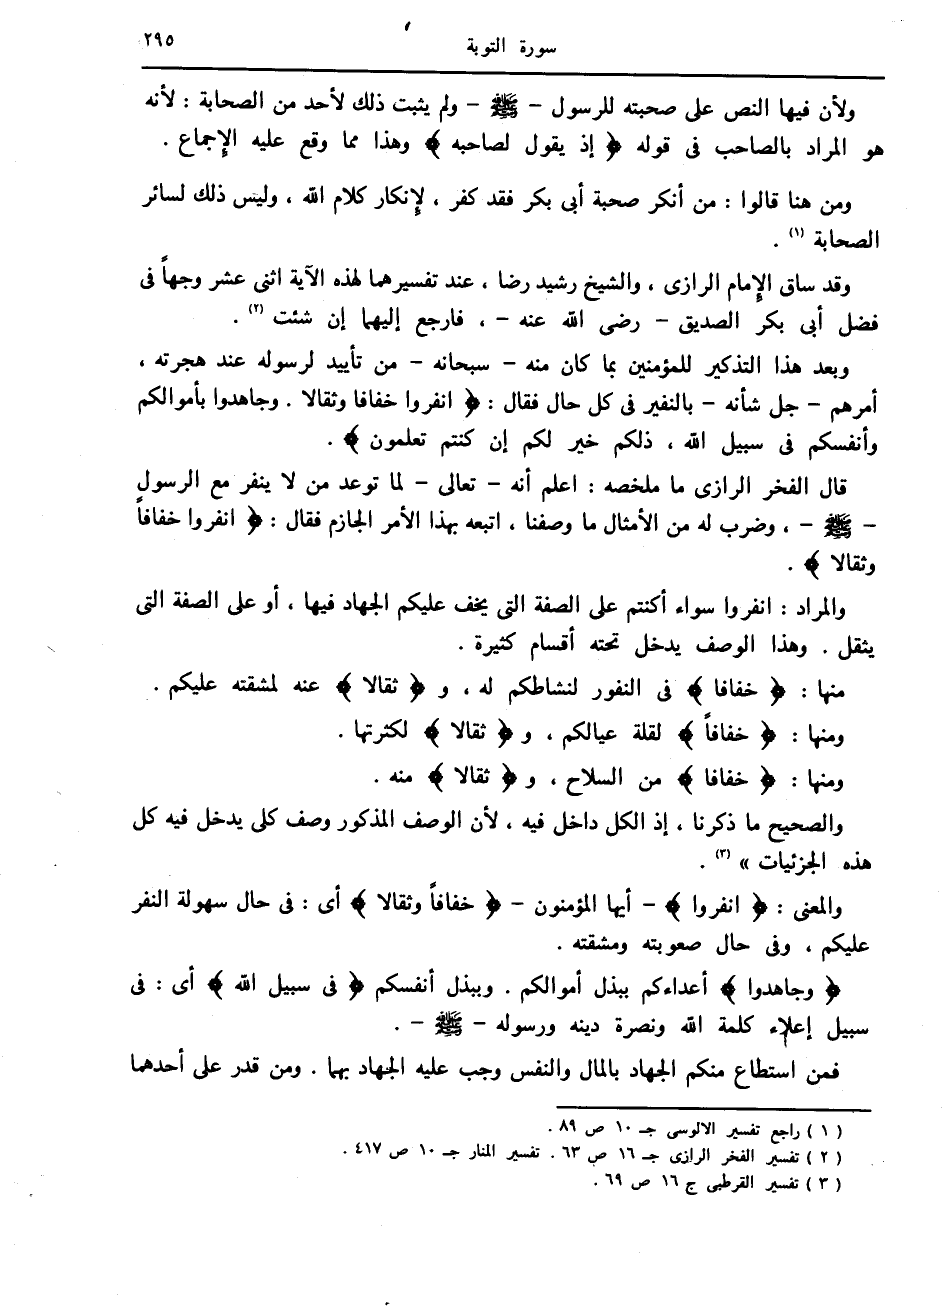 سورة التوبة ٢٩٥
ولأن فيها النص على صحبته للرسول - ﷺ - ولم يثبت ذلك لأحد من الصحابة : لأنه
هو المراد بالصاحب فى قوله ﴿ إذ يقول لصاحبه ﴾ وهذا مما وقع عليه الإجماع .
ومن هنا قالوا : من أنكر صحبة أبى بكر فقد كفر ، لإنكار كلام الله ، وليس ذلك لسائر
الصحابة (١) .
وقد ساق الإمام الرازى ، والشيخ رشيد رضا ، عند تفسيرهما لهذه الآية اثنى عشر وجهاً فى
فضل أبى بكر الصديق - رضى الله عنه - ، فارجع إليهما إن شئت (٢) .
وبعد هذا التذكير للمؤمنين بما كان منه - سبحانه - من تأييد لرسوله عند هجرته ،
أمرهم - جل شأنه - بالنفير فى كل حال فقال : ﴿ انفروا خفافا وثقالا . وجاهدوا بأموالكم
وأنفسكم فى سبيل الله ، ذلكم خير لكم إن كنتم تعلمون ﴾ .
قال الفخر الرازى ما ملخصه : اعلم أنه - تعالى - لما توعد من لا ينفر مع الرسول
- ﷺ - ، وضرب له من الأمثال ما وصفنا ، اتبعه بهذا الأمر الجازم فقال : ﴿ انفروا خفافاً
وثقالا ﴾ .
والمراد : انفروا سواء أكنتم على الصفة التى يخف عليكم الجهاد فيها ، أو على الصفة التى
يثقل . وهذا الوصف يدخل تحته أقسام كثيرة .
منها : ﴿ خفافا ﴾ فى النفور لنشاطكم له ، و ﴿ ثقالا ﴾ عنه لمشقته عليكم .
ومنها : ﴿ خفافاً ﴾ لقلة عيالكم ، و ﴿ ثقالا ﴾ لكثرتها .
ومنها : ﴿ خفافا ﴾ من السلاح ، و ﴿ ثقالا ﴾ منه .
والصحيح ما ذكرنا ، إذ الكل داخل فيه ، لأن الوصف المذكور وصف كلى يدخل فيه كل
هذه الجزئيات » (٣) .
والمعنى : ﴿ انفروا ﴾ - أيها المؤمنون - ﴿ خفافاً وثقالا ﴾ أى : فى حال سهولة النفر
عليكم ، وفى حال صعوبته ومشقته .
﴿ وجاهدوا ﴾ أعداءكم ببذل أموالكم . وببذل أنفسكم ﴿ فى سبيل الله ﴾ أى : فى
سبيل إعلاء كلمة الله ونصرة دينه ورسوله - ﷺ - .
فمن استطاع منكم الجهاد بالمال والنفس وجب عليه الجهاد بهما . ومن قدر على أحدهما
( ١ ) راجع تفسير الالوسى جـ ١٠ ص ٨٩ .
( ٢ ) تفسير الفخر الرازى جـ ١٦ ص ٦٣ . تفسير المنار جـ ١٠ ص ٤١٧ .
( ٣ ) تفسير القرطبى ج ١٦ ص ٦٩ .